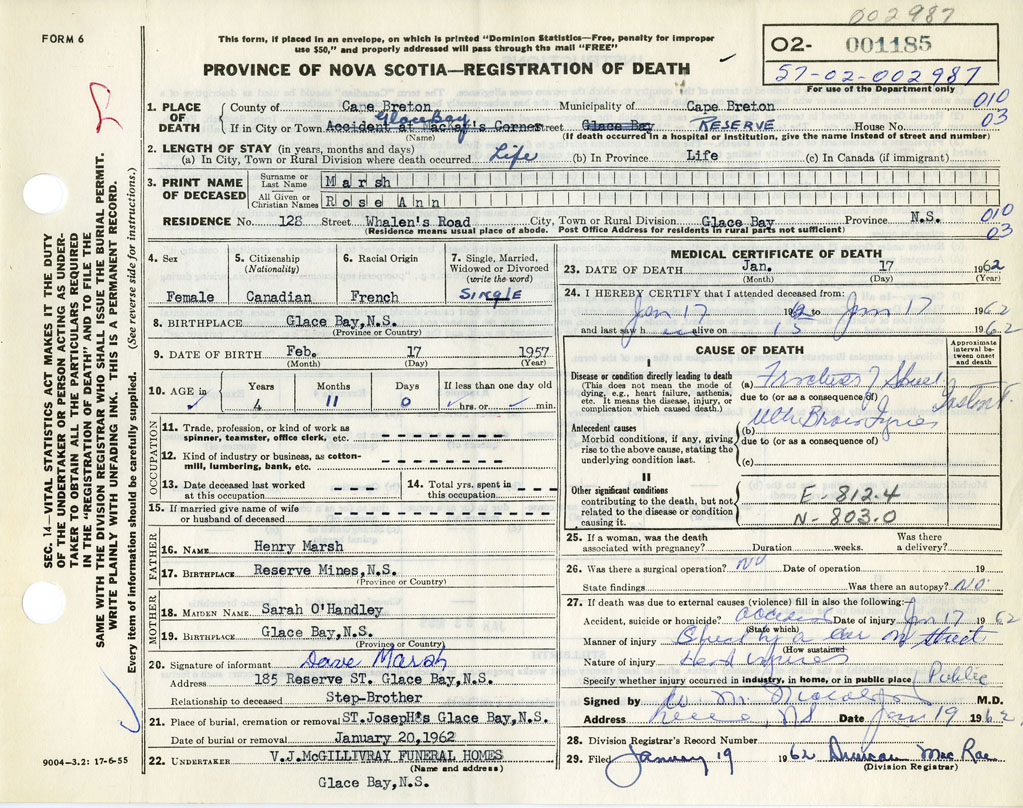 002987
FORM 6
This form, if placed in an envelope, on which is printed "Dominion Statistics—Free, penalty for improper
use $50," and properly addressed will pass through the mail "FREE"
O2- 001185
57-02-002987
For use of the Department only
PROVINCE OF NOVA SCOTIA—REGISTRATION OF DEATH
1. PLACE OF DEATH
County of Cape Breton Municipality of Cape Breton 010
Glace Bay
If in City or Town Accident at MacKay's Corner Street Glace Bay RESERVE House No. 03
(Name) (If death occurred in a hospital or institution, give the name instead of street and number)
2. LENGTH OF STAY (in years, months and days)
(a) In City, Town or Rural Division where death occurred Life (b) In Province Life (c) In Canada (if immigrant)
3. PRINT NAME OF DECEASED
Surname or Last Name Marsh
All Given or Christian Names Rose Ann
RESIDENCE No. 128 Street Whalen's Road City, Town or Rural Division Glace Bay Province N.S. 010
(Residence means usual place of abode. Post Office Address for residents in rural parts not sufficient) 03
4. Sex Female
5. Citizenship (Nationality) Canadian
6. Racial Origin French
7. Single, Married, Widowed or Divorced (write the word) SINGLE
8. BIRTHPLACE Glace Bay,N.S.
(Province or Country)
9. DATE OF BIRTH Feb. 17 1957
(Month) (Day) (Year)
10. AGE in Years Months Days If less than one day old
4 11 0 hrs. or min.
OCCUPATION
11. Trade, profession, or kind of work as
spinner, teamster, office clerk, etc. - - - - - - - -
12. Kind of industry or business, as cotton-
mill, lumbering, bank, etc. - - - - - - - -
13. Date deceased last worked
at this occupation - - - -
14. Total yrs. spent in
this occupation - - -
15. If married give name of wife
or husband of deceased - - - - - - - -
FATHER
16. NAME Henry Marsh
17. BIRTHPLACE Reserve Mines,N.S.
(Province or Country)
MOTHER
18. MAIDEN NAME Sarah O'Handley
19. BIRTHPLACE Glace Bay,N.S.
(Province or Country)
20. Signature of informant Dave Marsh
Address 185 Reserve ST. Glace Bay,N.S.
Relationship to deceased Step-Brother
21. Place of burial, cremation or removal ST.JosepH's Glace Bay,N.S.
Date of burial or removal January 20,1962
22. UNDERTAKER V.J.McGILLIVRAY FUNERAL HOMES
(Name and address)
Glace Bay,N.S.
9004—3.2: 17-6-55
MEDICAL CERTIFICATE OF DEATH
23. DATE OF DEATH Jan. 17 1962
(Month) (Day) (Year)
24. I HEREBY CERTIFY that I attended deceased from:
Jan 17 1962 to Jan 17 1962
and last saw h alive on 1962
CAUSE OF DEATH
Approximate interval between onset and death
I
Disease or condition directly leading to death
(This does not mean the mode of
dying, e.g., heart failure, asthenia,
etc. It means the disease, injury, or
complication which caused death.)
(a) Fracture of Skull
due to (or as a consequence of)
Antecedent causes
Morbid conditions, if any, giving
rise to the above cause, stating the
underlying condition last.
(b) With Brain Injuries
due to (or as a consequence of)
(c)
II
Other significant conditions
contributing to the death, but not
related to the disease or condition
causing it.
E-812.4
N-803.0
25. If a woman, was the death Was there
associated with pregnancy? Duration weeks. a delivery?
26. Was there a surgical operation? NO Date of operation 19
State findings Was there an autopsy? NO
27. If death was due to external causes (violence) fill in also the following:—
Accident, suicide or homicide? accident Date of injury Jan 17 1962
(State which)
Manner of injury by a car on street
(How sustained)
Nature of injury Head injuries
Specify whether injury occurred in industry, in home, or in public place Public
Signed by W. M. M.D.
Address Reserve, NS Date Jan 19 1962
28. Division Registrar's Record Number
29. Filed January 19 1962 Duncan MacRae
(Division Registrar)
SEC. 14—VITAL STATISTICS ACT MAKES IT THE DUTY
OF THE UNDERTAKER OR PERSON ACTING AS UNDER-
TAKER TO OBTAIN ALL THE PARTICULARS REQUIRED
IN THE "REGISTRATION OF DEATH" AND TO FILE THE
SAME WITH THE DIVISION REGISTRAR WHO SHALL ISSUE THE BURIAL PERMIT.
WRITE PLAINLY WITH UNFADING INK. THIS IS A PERMANENT RECORD.
Every item of Information should be carefully supplied. (See reverse side for instructions.)